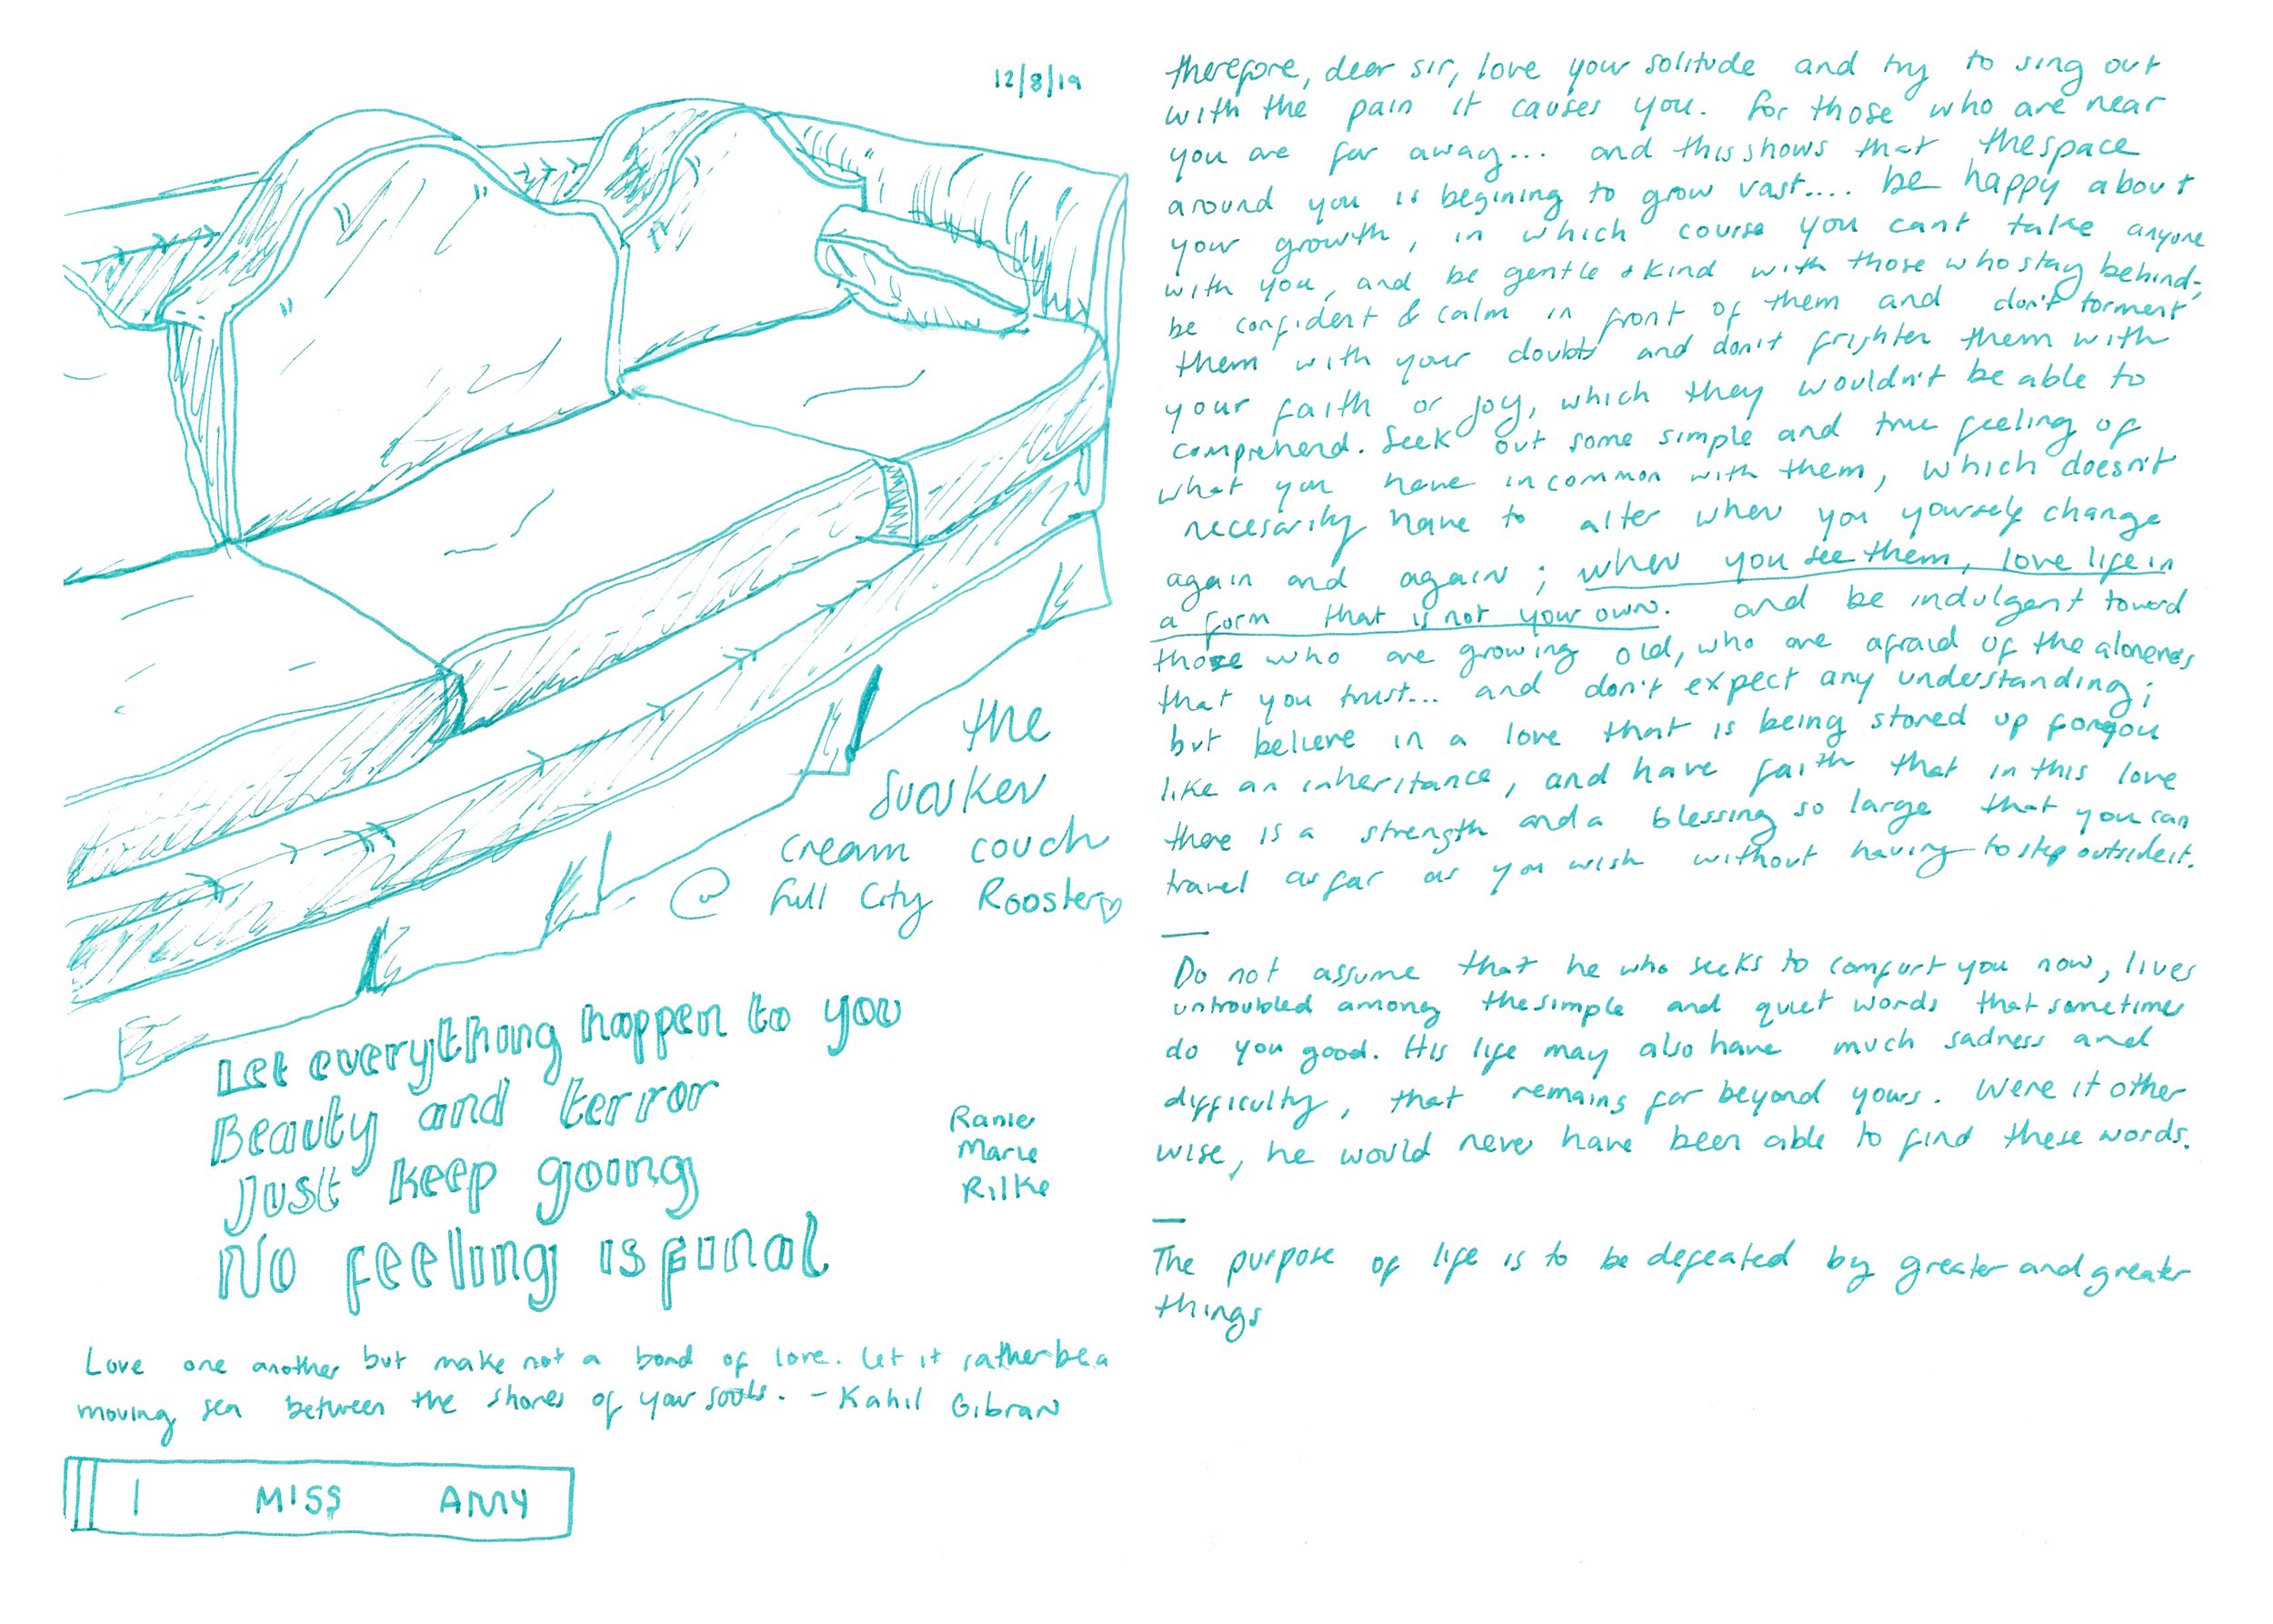 12/8/19
the
sunken
cream couch
@ Full City Rooster
Let everything happen to you
Beauty and terror
Just keep going
No feeling is final
Ranier
Marie
Rilke
Love one another but make not a bond of love. Let it rather be a
moving sea between the shores of your souls. - Kahil Gibran
I MISS AMY
therefore, dear sir, love your solitude and try to sing out
with the pain it causes you. for those who are near
you are far away... and this shows that the space
around you is begining to grow vast.... be happy about
your growth, in which course you cant take anyone
with you, and be gentle & kind with those who stay behind;
be confident & calm in front of them and don't torment
them with your doubts and don't frighten them with
your faith or joy, which they wouldn't be able to
comprehend. Seek out some simple and true feeling of
what you have in common with them, which doesn't
necesarily have to alter when you yourself change
again and again; when you see them, love life in
a form that is not your own. and be indulgent toward
those who are growing old, who are afraid of the aloneness
that you trust... and don't expect any understanding;
but believe in a love that is being stored up for you
like an inheritance, and have faith that in this love
there is a strength and a blessing so large that you can
travel as far as you wish without having to step outside it.
Do not assume that he who seeks to comfort you now, lives
untroubled among the simple and quiet words that sometimes
do you good. His life may also have much sadness and
difficulty, that remains far beyond yours. Were it other
wise, he would never have been able to find these words.
The purpose of life is to be defeated by greater and greater
things